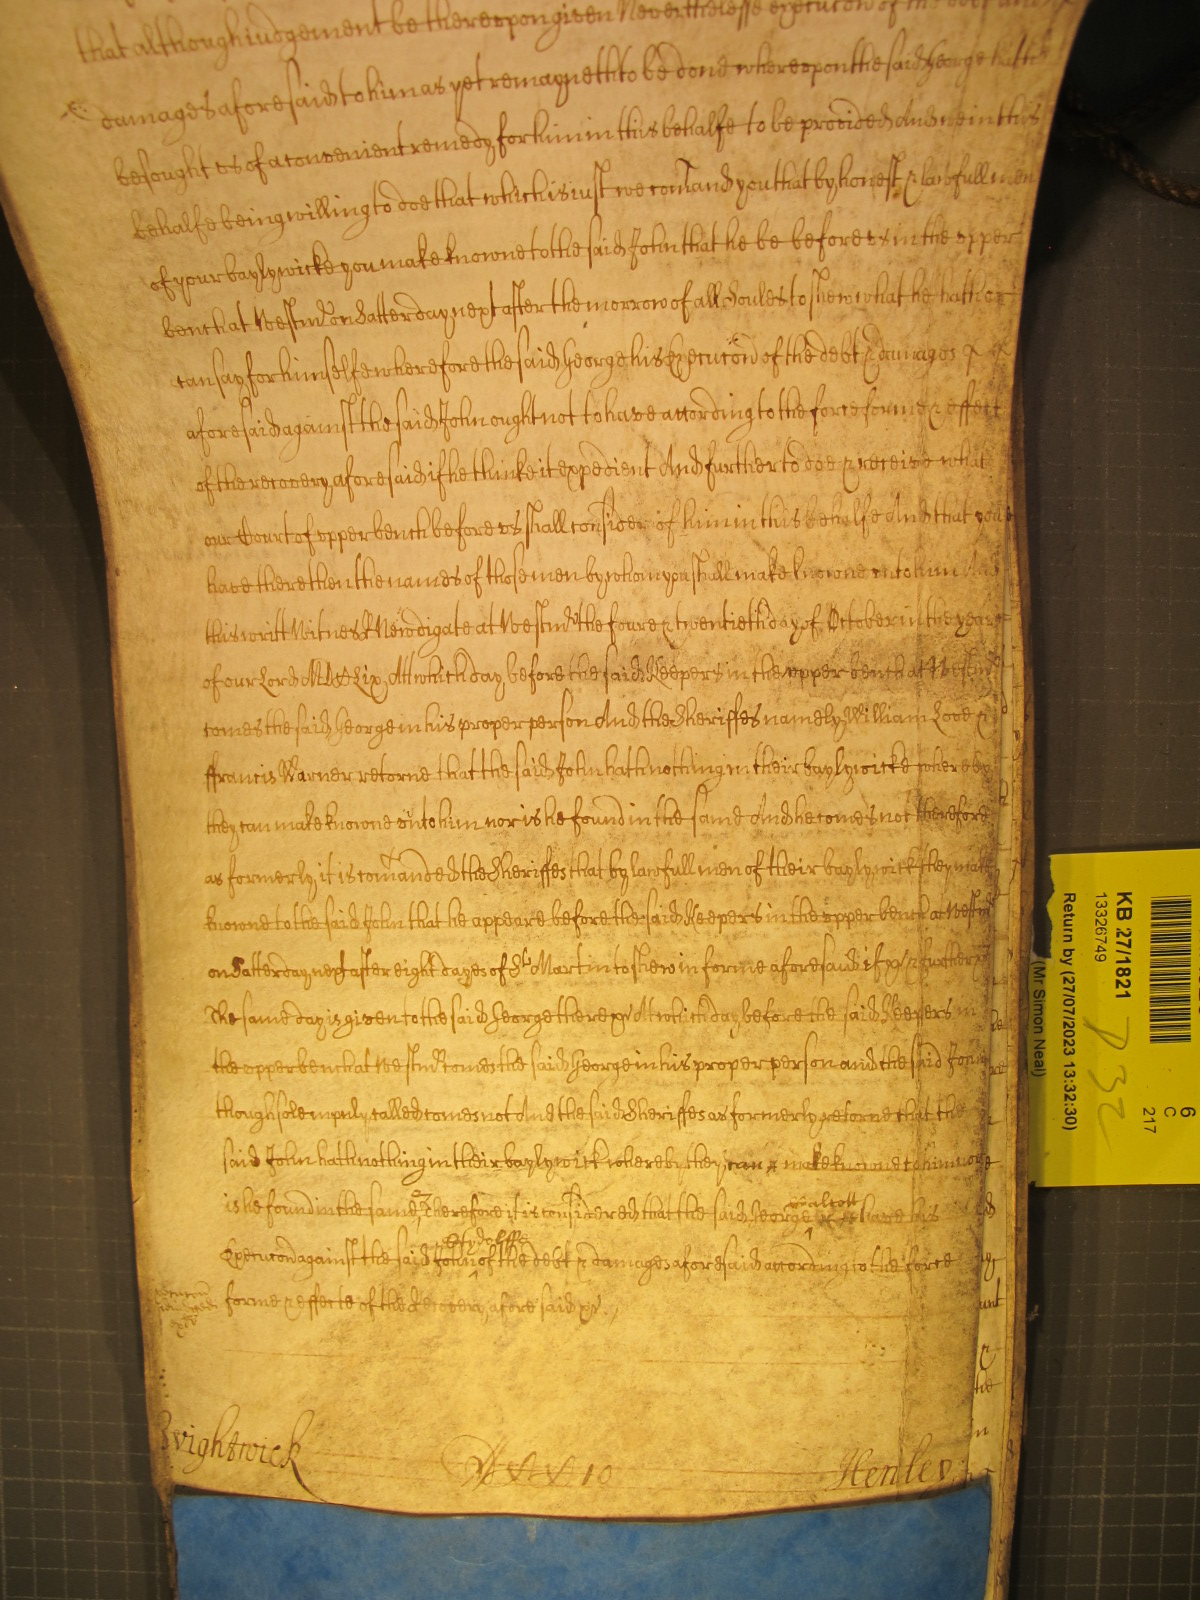 that although iudgement be thereupon given Neverthelesse execucōn of the debt and
damages aforesaid to him as yet remayneth to be done whereupon the said George hath
besought us of a convenient remedy for him in this behalfe to be provided And we in this
behalfe being willing to doe that which is iust we com̄and you that by honest & lawfull men
of your baylywicke you make knowne to the said John that he be before us in the upper
bench at Westmr on Satterday next after the morrow of all Soules to shew what he hath or
can say for himselfe wherefore the said George his Execucōn of the debt & damages
aforesaid against the said John ought not to have according to the force forme & effect
of the recovery aforesaid if he thinke it expedient And further to doe & receive what
our Court of upper bench before us shall consider of him in this behalfe And that you
have there then the names of those men by whom you shall make knowne unto him And
this writt Witnes R Newdigate at Westmr the foure & twentieth day of October in the yeare
of our Lord MDCLix, Att which day before the said Keepers in the upper bench at Westmr
comes the said George in his proper person And the Sheriffes namely William Love &
ffrancis Warner retorne that the said John hath nothing in their baylywicke whereby
they can make knowne unto him nor is he found in the same And he comes not therefore
as formerly it is com̄anded the Sheriffes that by lawfull men of their baylywick they make
knowne to the said John that he appeare before the said Keepers in the upper bench at Westmr
on Satterday next after eight dayes of St Martin to shew in forme aforesaid if &c & further &c
The same day is given to the said George there &c Att which day before the said Keepers in
the upper bench at Westmr comes the said George in his proper person and the said John
though solempnly called comes not And the said Sheriffes as formerly retorne that the
said John hath nothing in their baylywick whereby they can make knowne to him nor
is he found in the same Therefore it is considered that the said George walcott have his
Execucōn against the said John of the debt & damages aforesaid according to the force
forme & effecte of the Recovery aforesaid &c.
Wightwick
Henley
KB 27/1821
13326749
Return by (27/07/2023 13:32:30)
(Mr Simon Neal)
6
C
217